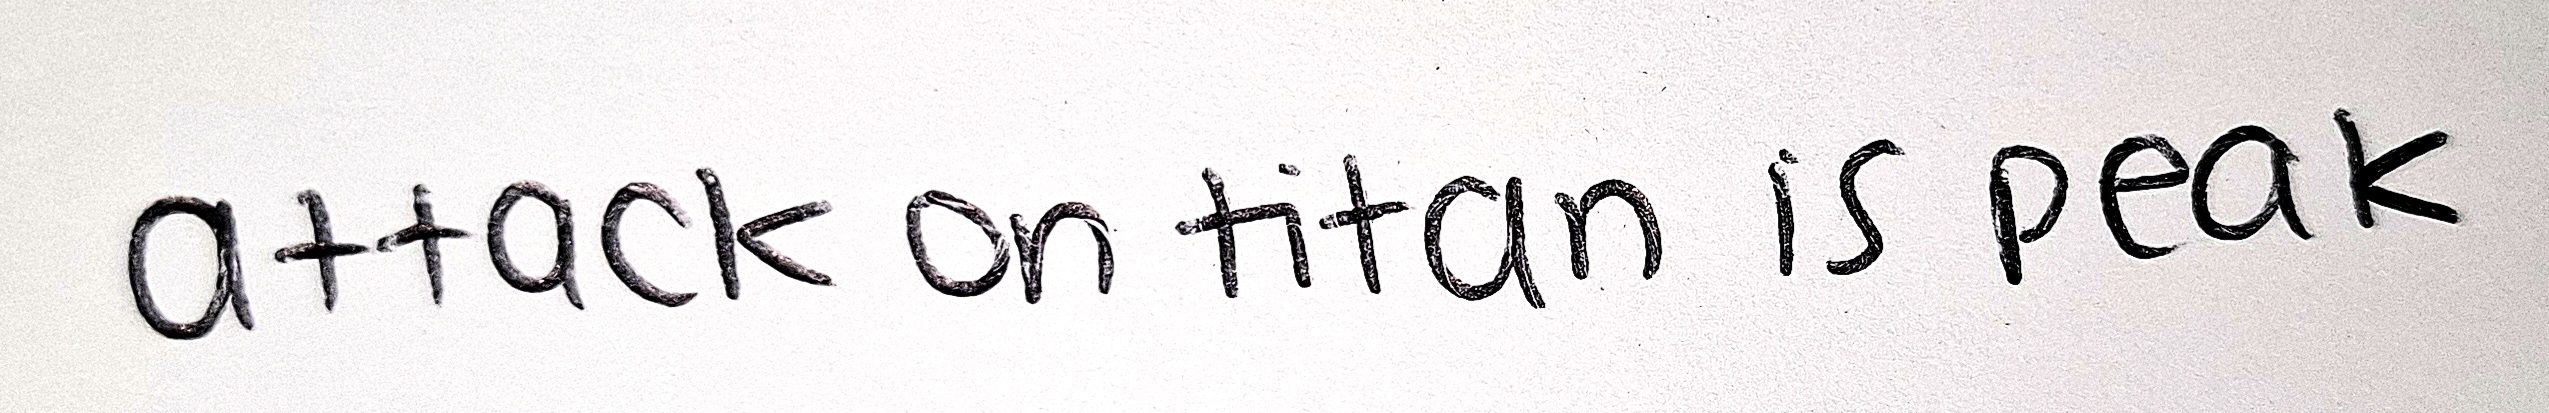 attack on titan is peak